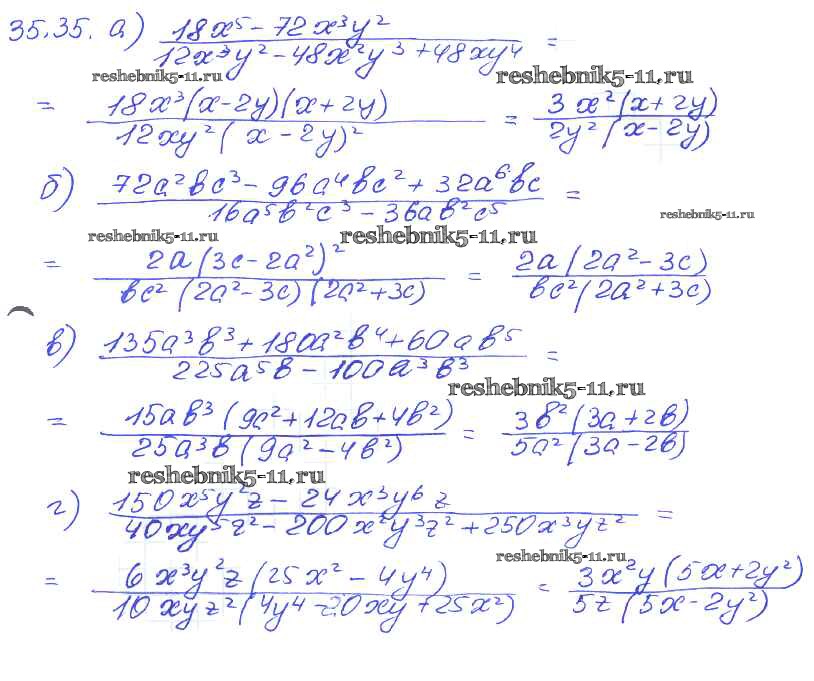 35.35. а) (18x⁵ - 72x³y²)/(12x³y² - 48x²y³ + 48xy⁴) =
reshebnik5-11.ru reshebnik5-11.ru
= (18x³(x-2y)(x+2y))/(12xy²(x-2y)²) = (3x²(x+2y))/(2y²(x-2y))
б) (72a²bc³ - 96a⁴bc² + 32a⁶bc)/(16a⁵b²c³ - 36ab²c⁵) =
reshebnik5-11.ru
reshebnik5-11.ru reshebnik5-11.ru
= (2a(3c-2a²)²)/(bc²(2a²-3c)(2a²+3c)) = (2a(2a²-3c))/(bc²(2a²+3c))
в) (135a³b³ + 180a²b⁴ + 60ab⁵)/(225a⁵b - 100a³b³) =
reshebnik5-11.ru
= (15ab³(9a²+12ab+4b²))/(25a³b(9a²-4b²)) = (3b²(3a+2b))/(5a²(3a-2b))
reshebnik5-11.ru
г) (150x⁵y²z - 24x³y⁶z)/(40xy⁵z² - 200x²y³z² + 250x³yz²) =
reshebnik5-11.ru
= (6x³y²z(25x² - 4y⁴))/(10xyz²(4y⁴ - 20xy + 25x²)) = (3x²y(5x+2y²))/(5z(5x-2y²))